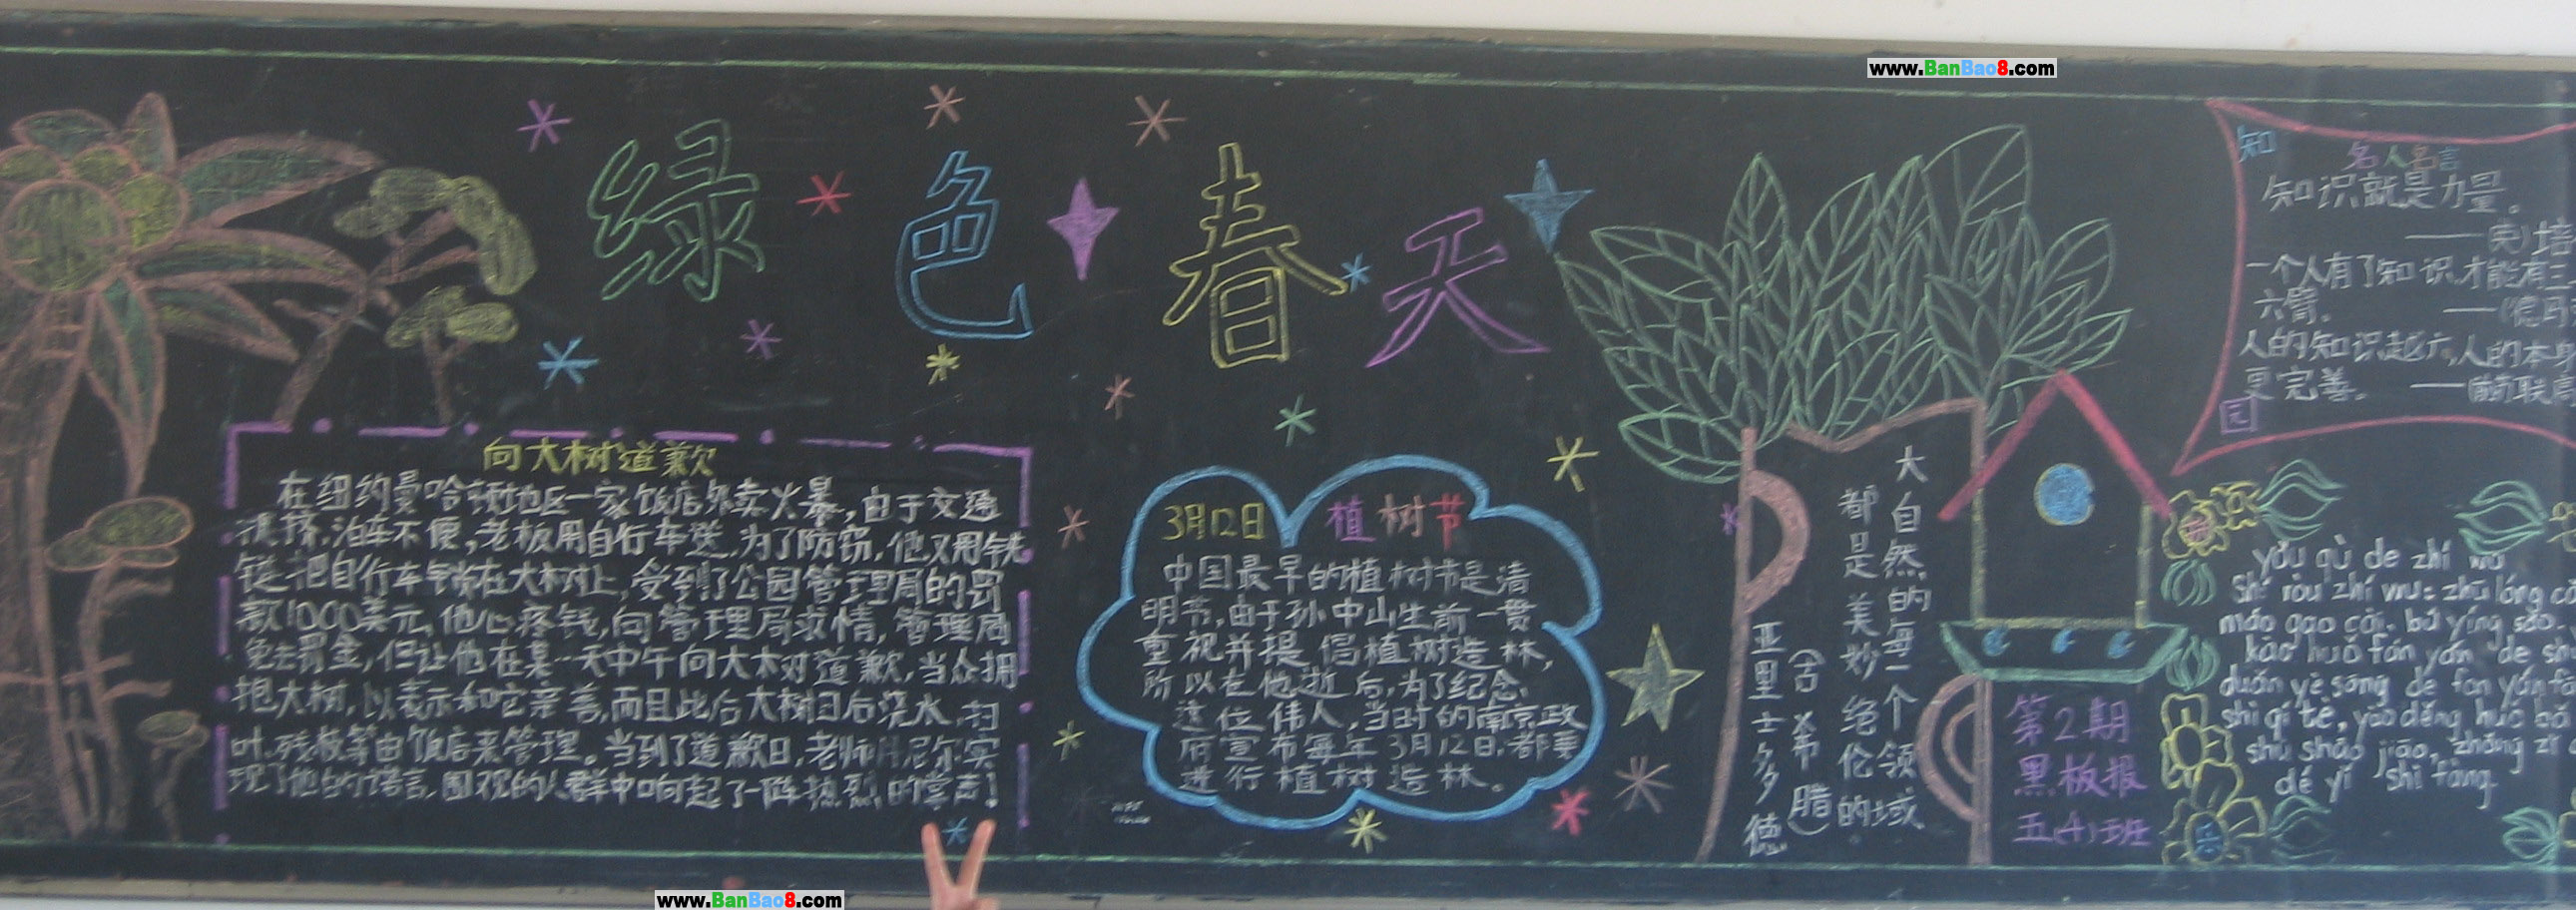 www.BanBao8.com
绿色春天
向大树道歉
在纽约曼哈顿地区一家饭店外卖火暴,由于交通
拥挤,泊车不便,老板用自行车送,为了防窃,他又用铁
链把自行车锁在大树上,受到了公园管理局的罚
款1000美元,他心疼钱,向管理局求情,管理局
免去罚金,但让他在某一天中午向大树道歉,当众拥
抱大树,以表示和它亲善,而且此后大树日后浇水,扫
叶,残枝等由饭店来管理。当到了道歉日,老师 尼尔实
现了他的诺言,围观的人群中响起了一阵热烈的掌声!
3月12日 植树节
中国最早的植树节是清
明节,由于孙中山生前一贯
重视并提倡植树造林,
所以在他逝后,为了纪念
这位伟人,当时的南京政
府宣布每年3月12日,都要
进行植树造林。
大自然的每一个领域
都是美妙绝伦的。
(古希腊)
亚里士多德
第2期
黑板报
五(4)班
知
名人名言
知识就是力量。
——(英)培
一个人有了知识,才能有三
六臂。 ——(德)
人的知识越广,人的本身
更完善。 ——(前苏联)
园
yǒu qù de zhí wù
Shí ròu zhí wu: zhū lóng cǎ
máo gao cài. bǔ yíng sǎo.
kào huǒ fán yǎn de shù
duǎn yè sōng de fan yǎn fā
shì qí tè, yào děng huǒ bǎ
shù shāo jiāo, zhǒng zi
dé yǐ shì fàng
www.BanBao8.com